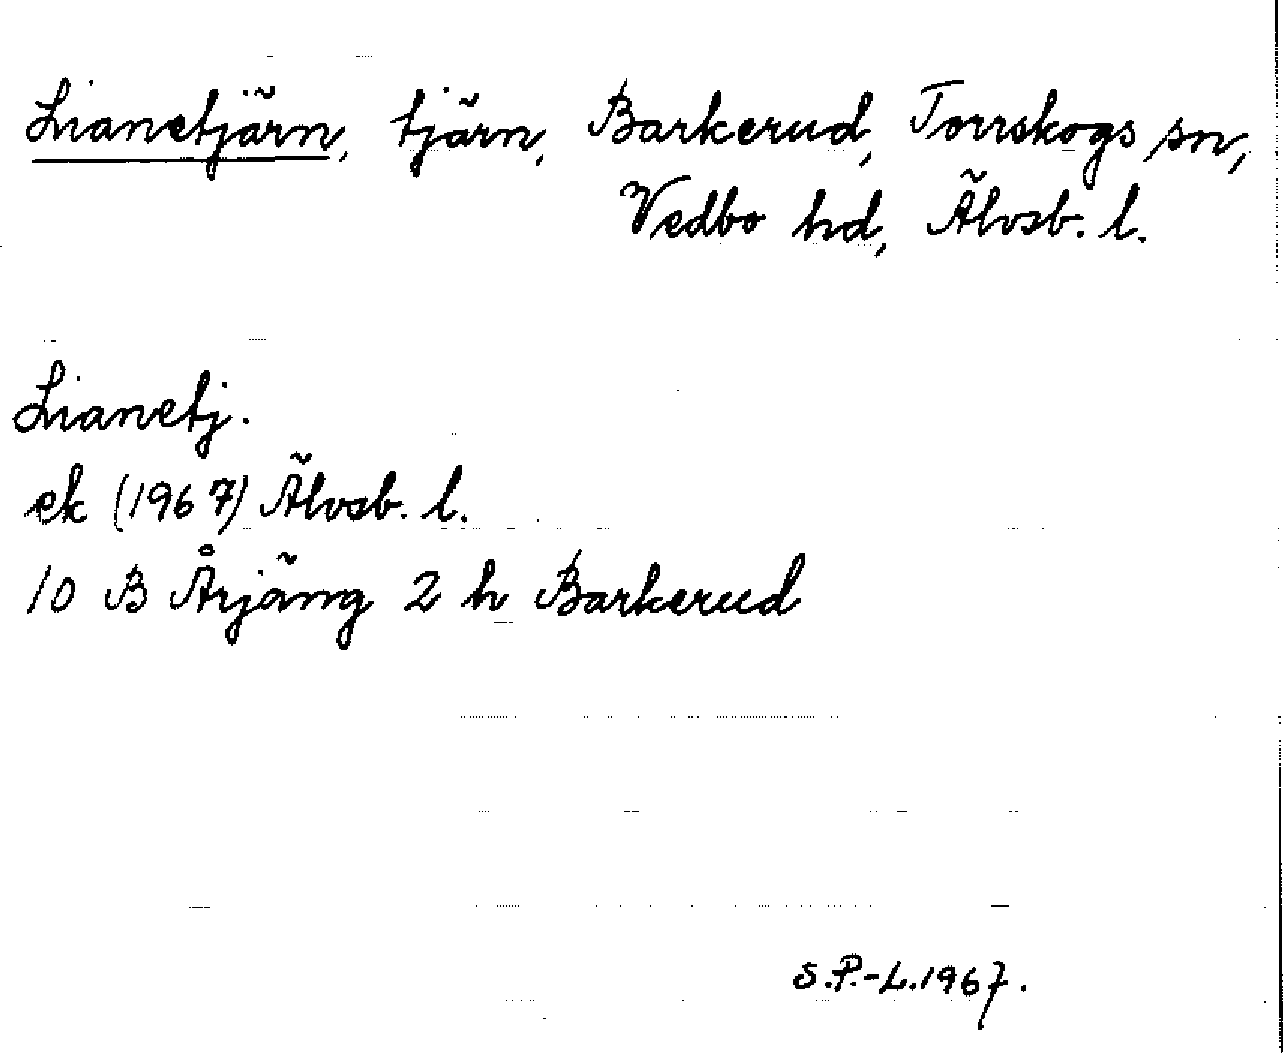 Lianetjärn, tjärn, Barkerud, Torrskogs sn,
Vedbo hd, Älvsb. l.
Lianetj.
ek (1967) Älvsb. l.
10 B Årjäng 2 h Barkerud
S.P.-L.1967.